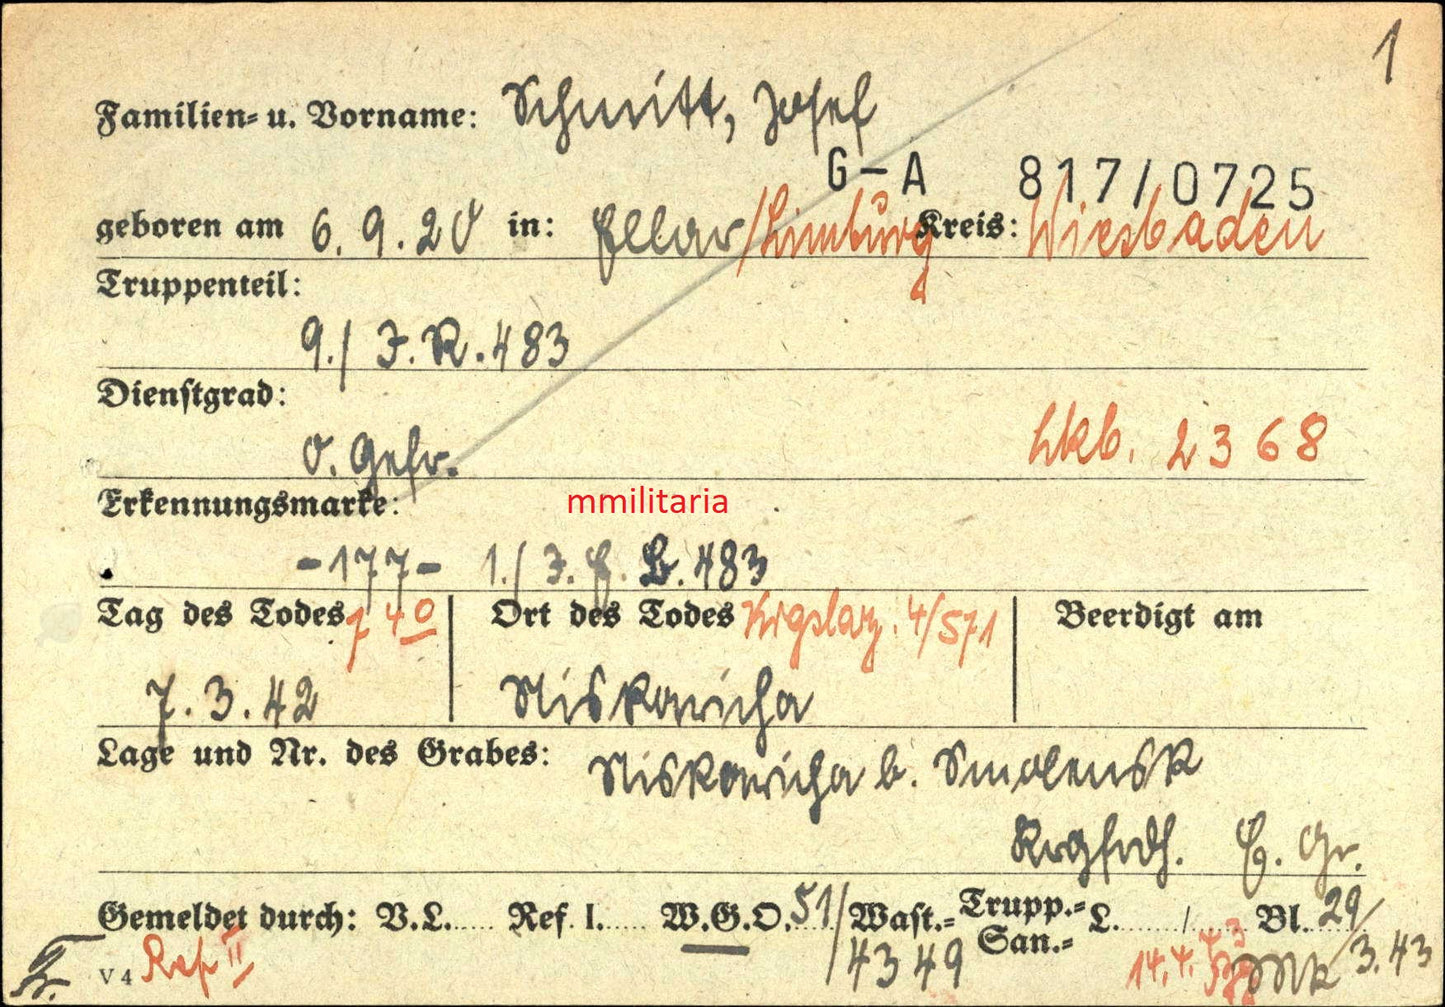 1
Familien- u. Vorname: Schmitt, Josef
G-A 817/0725
geboren am 6.9.20 in: Ellar/Limburg Kreis: Wiesbaden
Truppenteil:
9./J.R.483
Dienstgrad:
O.Gefr. 2368
Erkennungsmarke: mmilitaria
-177- 1./J.E.B.483
Tag des Todes 7 40 Ort des Todes 4/571 Beerdigt am
7.3.42 Niskaricha
Lage und Nr. des Grabes: Niskaricha b. Smolensk
Krgfrdh. E.Gr.
Gemeldet durch: V.L..... Ref. I..... W.G.O. 51/4349 Wast.= Trupp.=San.=L......./...... Bl. 29
V4 Ref II 14.4.43 3.43